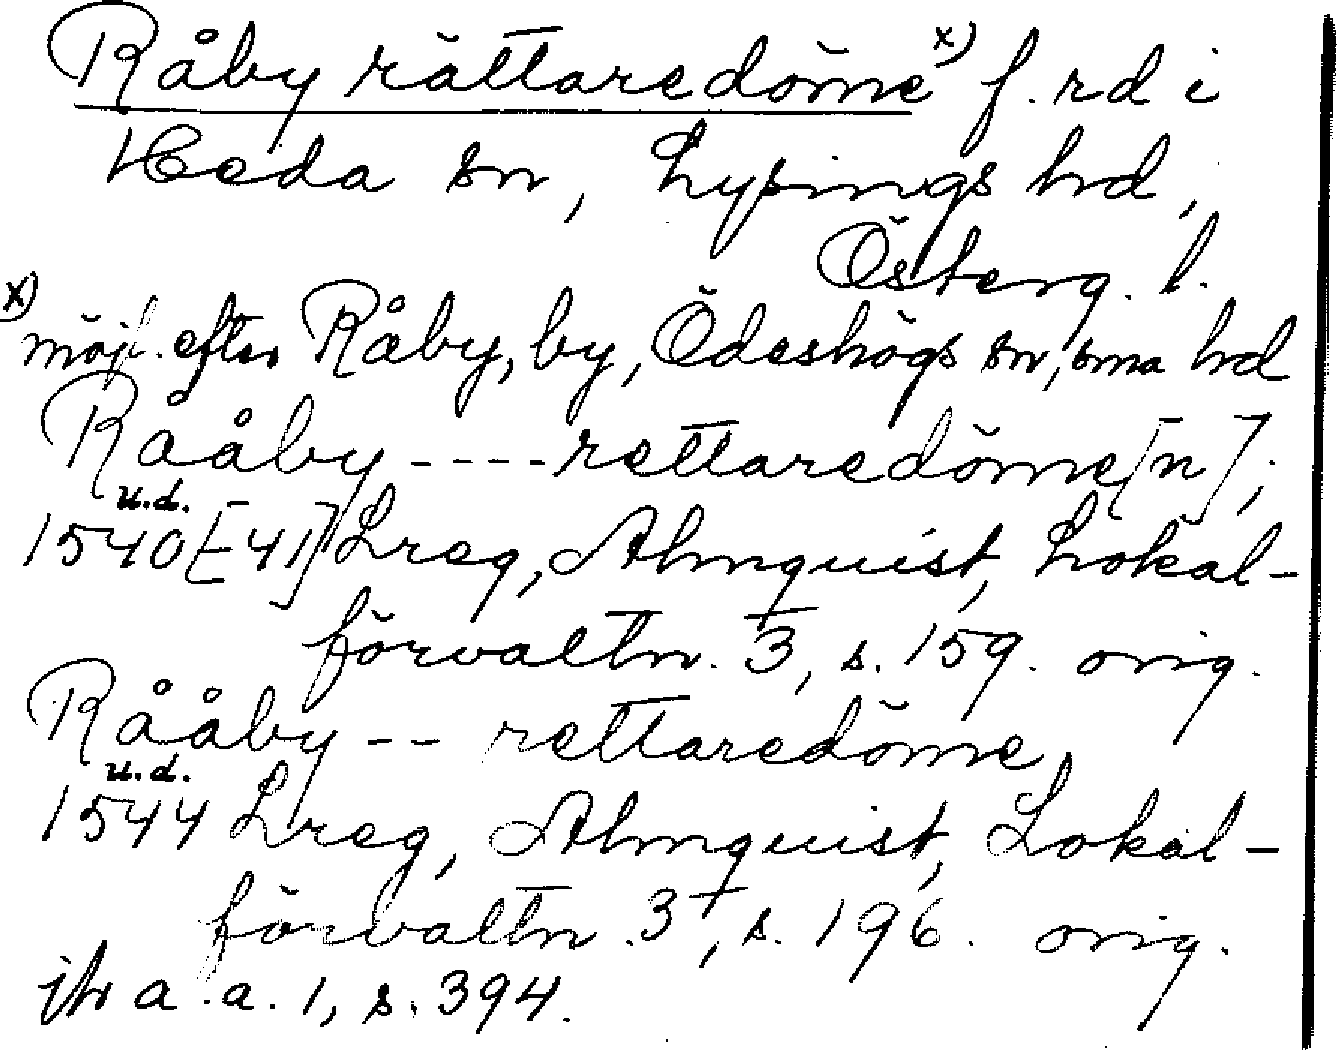 Råby rättaredöme x) f.rd i
Heda sn, Lysings hrd,
Österg. l.
x) möjl. efter Råby, by, Ödeshögs sn, sma hrd
Rååby ---- rettaredöme[n];
u.d.
1540[-41] Lreg, Almquist, Lokal-
förvaltn. 3, s. 159. orig.
Rååby -- rettaredöme,
u.d.
1544 Lreg, Almquist, Lokal-
förvaltn. 3, s. 196. orig.
jfr a.a. 1, s. 394.